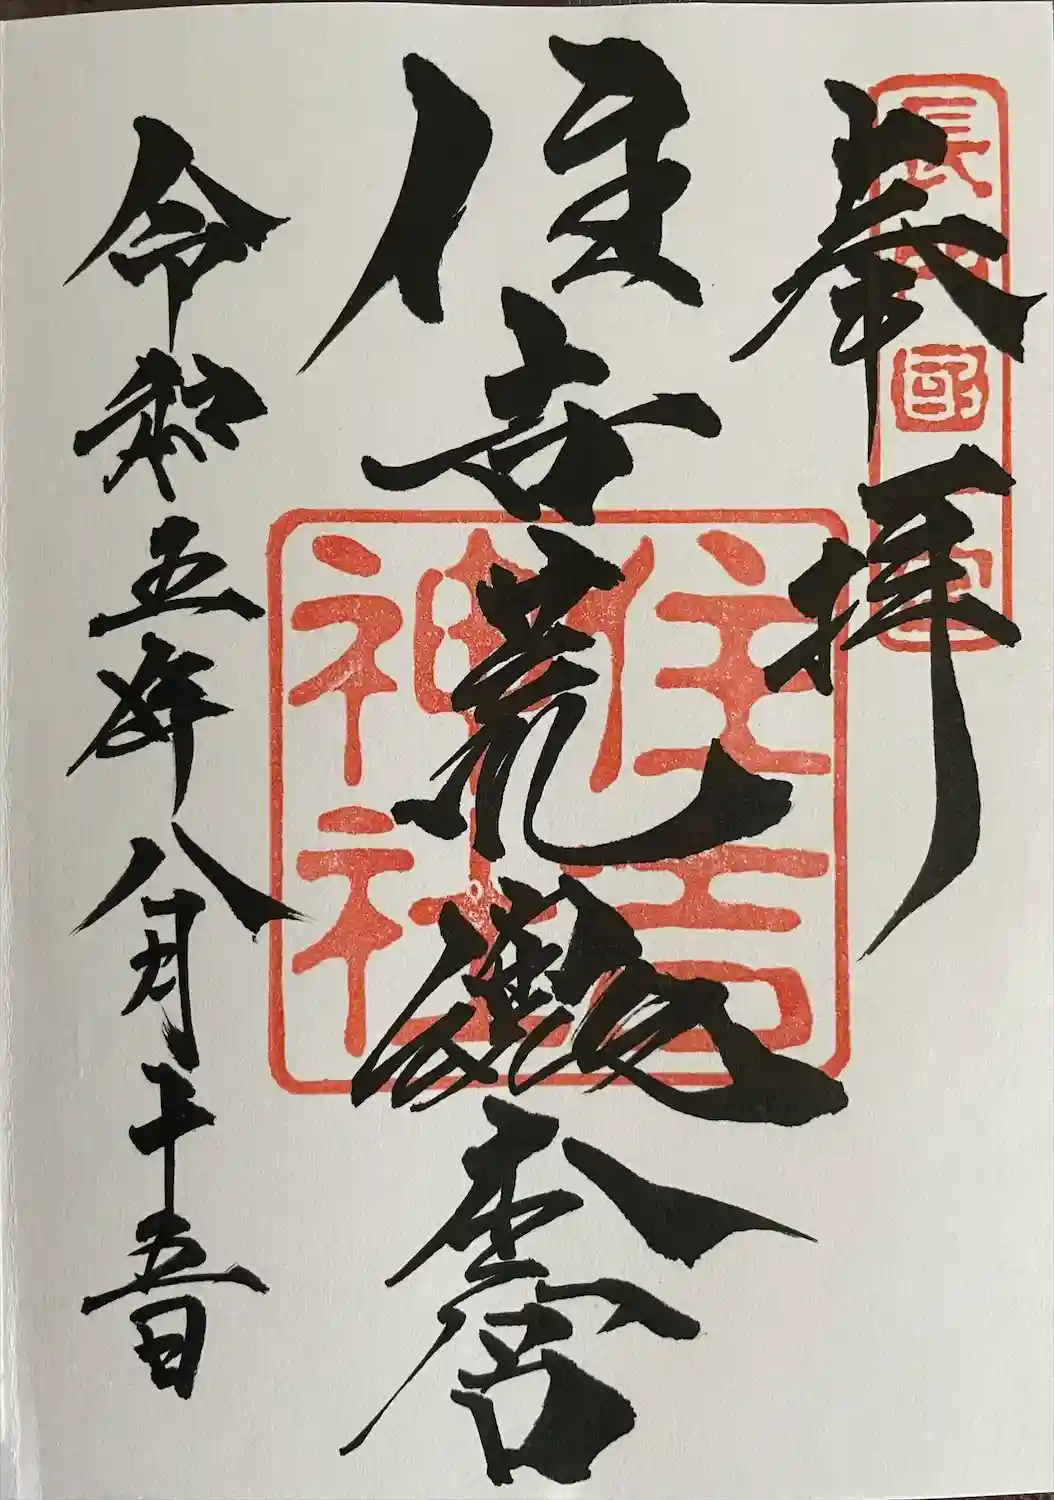 長門国一宮
奉拝
住吉荒魂本宮
住吉
神社
令和五年八月十五日